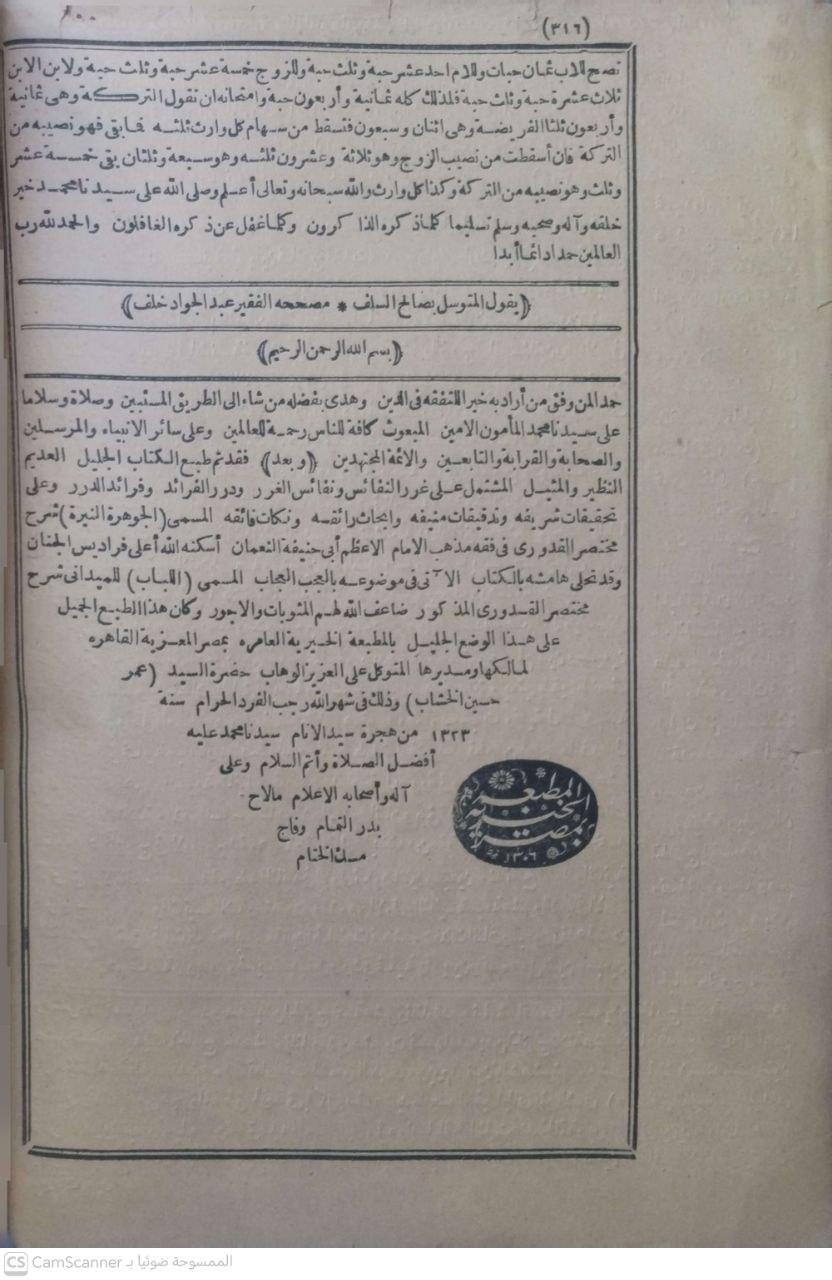 (٣١٦)
تصح للاب ثمان حبات وللام احد عشر حبة وثلث حبة وللزوج خمسة عشر حبة وثلث حبة ولابن الابن
ثلاث عشرة حبة وثلث حبة فلذلك كله ثمانية وأربعون حبة وامتحانه ان تقول التركة وهى ثمانية
وأربعون ثلثا الفريضة وهى اثنان وسبعون فتسقط من سهام كل وارث ثلثه فما بقى فهو نصيبه من
التركة فان أسقطت من نصيب الزوج وهو ثلاثة وعشرون ثلثه وهو سبعة وثلثان بقى خمسة عشر
وثلث وهو نصيبه من التركة وكذا كل وارث والله سبحانه وتعالى أعلم وصلى الله على سيدنا محمد خير
خلقه وآله وصحبه وسلم تسليما كلما ذكره الذاكرون وكلما غفل عن ذكره الغافلون والحمد لله رب
العالمين حمدا دائما أبدا
﴿يقول المتوسل بصالح السلف * مصححه الفقير عبد الجواد خلف﴾
﴿بسم الله الرحمن الرحيم﴾
حمدا لمن وفق من أراد به خيرا للتفقه فى الدين وهدى بفضله من شاء الى الطريق المستبين وصلاة وسلاما
على سيدنا محمد المأمون الامين المبعوث كافة للناس رحمة للعالمين وعلى سائر الانبياء والمرسلين
والصحابة والقرابة والتابعين والائمة المجتهدين ﴿وبعد﴾ فقد تم طبع الكتاب الجليل العديم
النظير والمثيل المشتمل على غرر النفائس ونفائس الغرر ودرر الفرائد وفرائد الدرر وعلى
تحقيقات شريفه وتدقيقات منيفه وابحاث رائقه ونكات فائقه المسمى (الجوهرة النيرة) شرح
مختصر القدورى فى فقه مذهب الامام الاعظم أبى حنيفة النعمان أسكنه الله أعلى فراديس الجنان
وقد تحلى هامشه بالكتاب الآتى فى موضوعه بالعجب العجاب المسمى (اللباب) للميدانى شرح
مختصر القدورى المذكور ضاعف الله لهم المثوبات والاجور وكان هذا الطبع الجميل
على هذا الوضع الجليل بالمطبعة الخيرية العامره بمصر المعزية القاهره
لمالكها ومديرها المتوكل على العزيز الوهاب حضرة السيد (عمر
حسين الخشاب) وذلك فى شهر الله رجب الفرد الحرام سنة
١٣٢٣ من هجرة سيد الانام سيدنا محمد عليه
أفضل الصلاة وأتم السلام وعلى
آله وأصحابه الاعلام مالاح
بدر التمام وفاح
مسك الختام
المطبعة
الخيرية
بمصر
١٣٠٦
CS CamScanner الممسوحة ضوئيا بـ